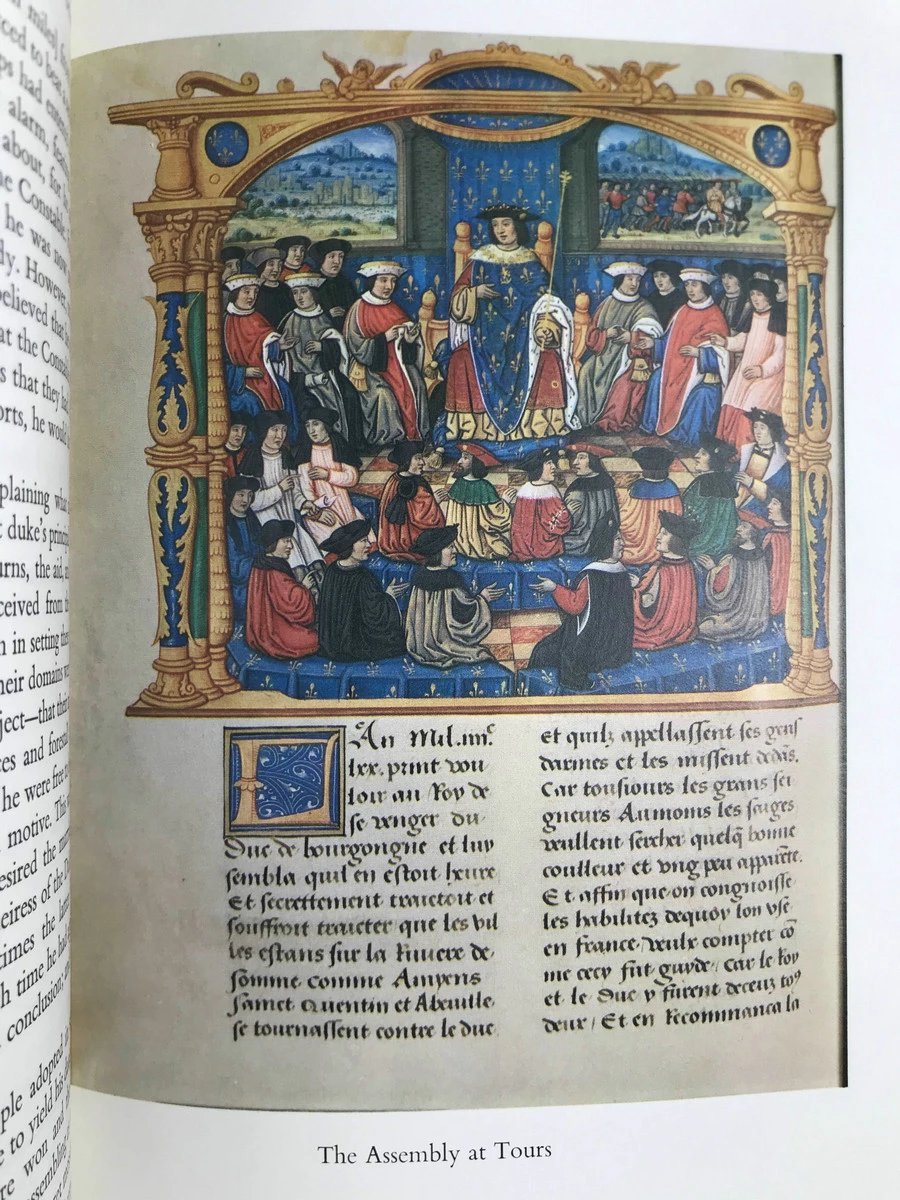 miled
alarm,
about, for
the Constable,
he was now
However,
believed that
at the Constab
s that they had
he would
plaining what
duke's princip
urns, the aid,
ceived from
in setting
heir domains
ject—that
ces and
he were free
motive. This
esired the
eiress of the D
times the
time he had
conclusion,
ple adopted
to yield his
won and
ssembling
LAn Mil.iiiic
lxx. print vou
loir au Roy de
se venger du
Duc de bourgongne et luy
sembla quil en estoit heure
Et secrettement traictoit et
souffroit traicter que les vil
les estans sur la Riuiere de
somme comme Amyens
Sainct Quentin et Abeuille
se tournassent contre le duc
et quilz appellassent ses gens
darmes et les missent dedās.
Car tousiours les grans sei
gneurs Aumoins les saiges
veullent sercher quelq̃ bonne
coulleur et vng peu apparēte.
Et affin que on congnoisse
les habilitez dequoy lon vse
en france, veulx compter cō
me cecy fut guyde, Car le Roy
et le Duc y furent deceuz to⁹
deux / Et en Recommanca la
The Assembly at Tours